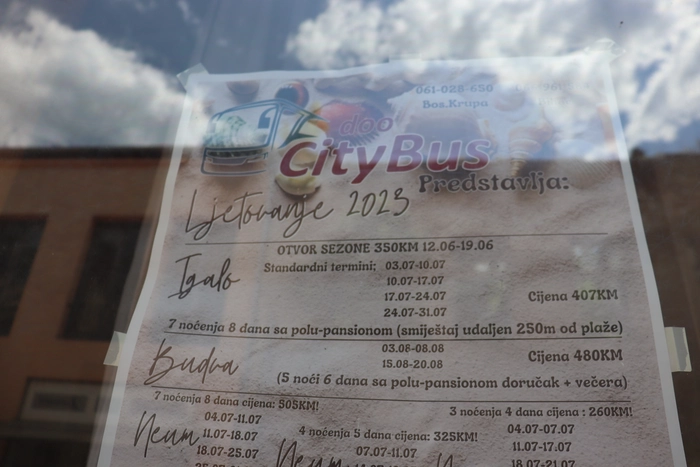 061-028-650
Bos.Krupa
doo
CityBus
Predstavlja:
Ljetovanje 2023
OTVOR SEZONE 350KM 12.06-19.06
Igalo
Standardni termini: 03.07-10.07
10.07-17.07
17.07-24.07
24.07-31.07
Cijena 407KM
7 noćenja 8 dana sa polu-pansionom (smiještaj udaljen 250m od plaže)
Budva
03.08-08.08
15.08-20.08
Cijena 480KM
(5 noći 6 dana sa polu-pansionom doručak + večera)
7 noćenja 8 dana cijena: 505KM!
Neum
04.07-11.07
11.07-18.07
18.07-25.07
4 noćenja 5 dana cijena: 325KM!
07.07-11.07
3 noćenja 4 dana cijena : 260KM!
04.07-07.07
11.07-17.07
18.07-21.07